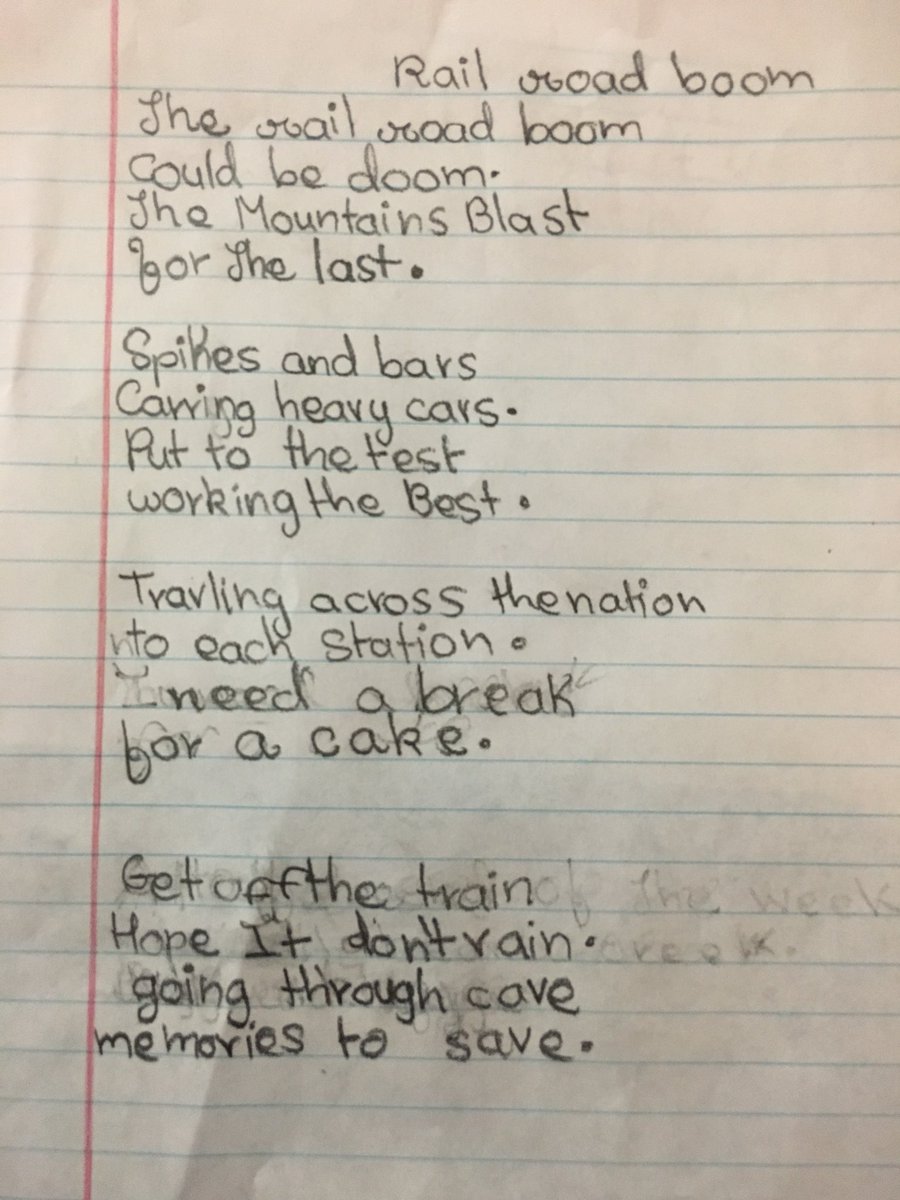 Rail road boom
The rail road boom
Could be doom.
The Mountains Blast
for The last.
Spikes and bars
Carring heavy cars.
Put to the test
working the Best.
Travling across the nation
to each station.
I need a break
for a cake.
Get off the train
Hope It don't rain.
going through cave
memories to save.